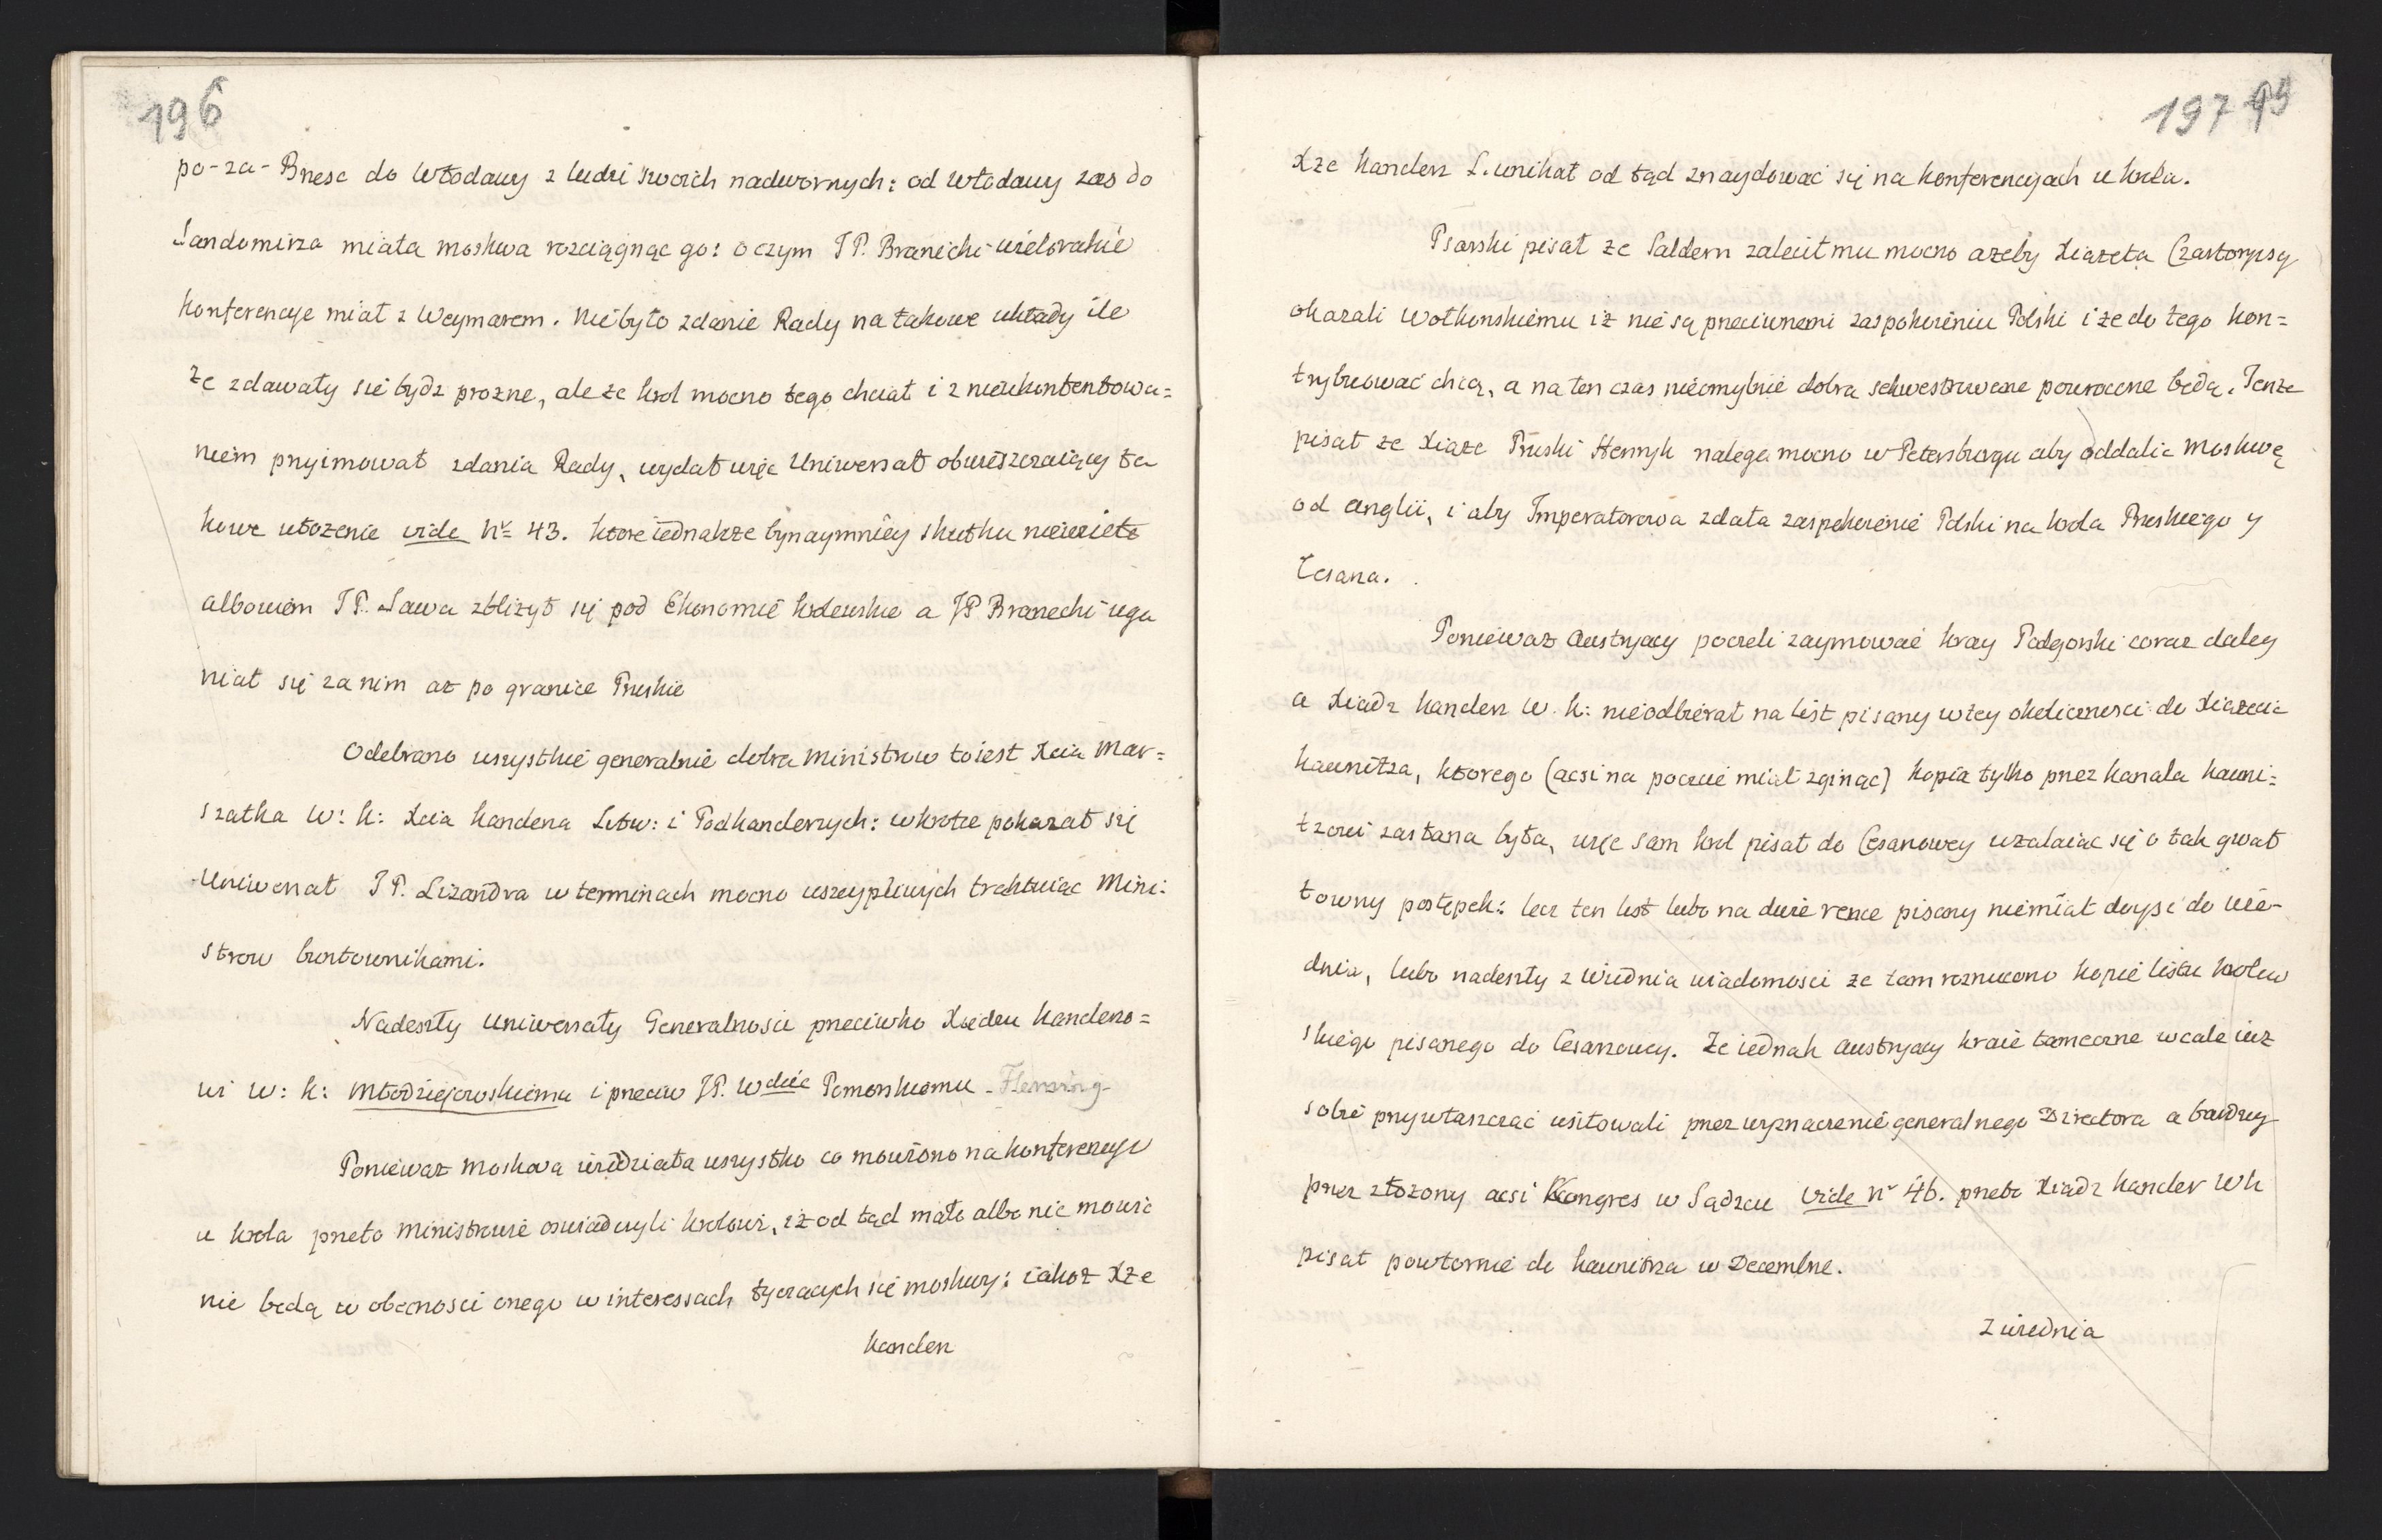 196
po-za-Brzesc do Włodawy z ludzi swoich nadwornych: od Włodawy zas do
Sandomirza miała moskwa rozciągnąc go: o czym J P. Branicki wielorakie
Konferencye miał z Weymarem. Nie było zdanie Rady na takowe układy ile
że zdawały sie bydz prozne, ale ze krol mocno tego chciał i z nieukontentowa=
niem przyimował zdania Rady, wydał więc Uniwersał obwieszczaiący ta
kowe ułozenie vide Nr 43. ktore iednakze bynaymniey skutku niewzieło
albowiem J P. Sawa zblizył się pod Ekonomie krolewskie a JP Branecki uga
niał się za nim az po granice Pruskie
Odebrano wszystkie generalnie dobra Ministrow to iest Xcia Mar=
szałka W: K: Xcia Kanclerza Litw: i Podkanclerzych: wkrotce pokazał się
Uniwersał J P. Lizandra w terminach mocno uszczypliwych traktuiąc Mini=
strow buntownikami.
Nadeszły Uniwersały Generalnosci przeciwko Xiedzu Kanclerzo=
wi W: K: Młodziejowskiemu i przeciw JP. Wdzie Pomorskiemu - Flemming-
Poniewaz Moskwa wiedziała wszystko co mowiono na konferencye
u krola przeto Ministrowie oswiadczyli krolowi, iż od tąd mało albo nic mowic
nie będą w obecnosci onego w interessach tyczących sie moskwy: iakoz Xże
Kanclerz
197 99
Xże Kanclerz L. unikał od tąd znaydować się na Konferencyach u krola.
Psarski pisał ze Saldern zalecił mu mocno azeby Xiązeta Czartoryscy
okazali Wołkonskiemu iż nie są przeciwnemi zaspokoieniu Polski i że do tego kon=
trybuować chcą, a na ten czas nieomylnie dobra sekwestrowane powrocone będą. Tenze
pisał ze Xiąze Pruski Henryk nalega mocno w Petersburgu aby oddalic Moskwę
od Anglii, i aby Imperatorowa zdała zaspokoienie Polski na krola Pruskiego y
Cesarza.
Poniewaz Austryacy poczeli zaymować kray Podgorski coraz daley
a Xiadz Kanclerz W. K: nieodbierał na list pisany w tey okolicznosci do Xiazecia
Kaunitza, ktorego (acsi na poczcie miał zginąc) kopia tylko przez Kanała Kauni=
tzowi zasłana była, więc sam krol pisał do Cesarzowey uzalaiac się o tak gwał
towny postępek: lecz ten list lubo na dwie rence pisany niemiał doysc do Wie-
dnia, lubo nadeszły z Wiednia wiadomosci ze tam roznucono kopie listu krolew
skiego pisanego do Cesarzowey. Ze iednak Austryacy kraie tameczne wcale iuz
sobie przywłaszczać usiłowali przez wyznaczenie generalnego Directora a bardziey
przez złożony acsi Kongres w Sądzcu vide Nr 46. przeto Xiadz Kanclerz WK
pisał powtornie do Kaunitza w Decembrze.
z Wiednia